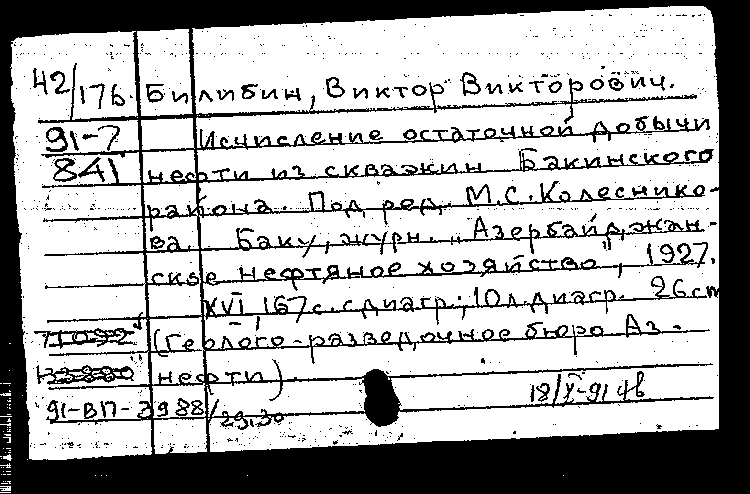 42/176. Билибин, Виктор Викторович.
91-7 Исчисление остаточной добычи
841 нефти из скважин Бакинского
района. Под ред. М.С. Колеснико-
ва. Баку, журн. „Азербайджан-
ское нефтяное хозяйство", 1927.
XVI, 167 с. с диагр.; 10 л. диагр. 26 cm
(Геолого-разведочное бюро Аз-
нефти)
91-ВП-2988/29,30